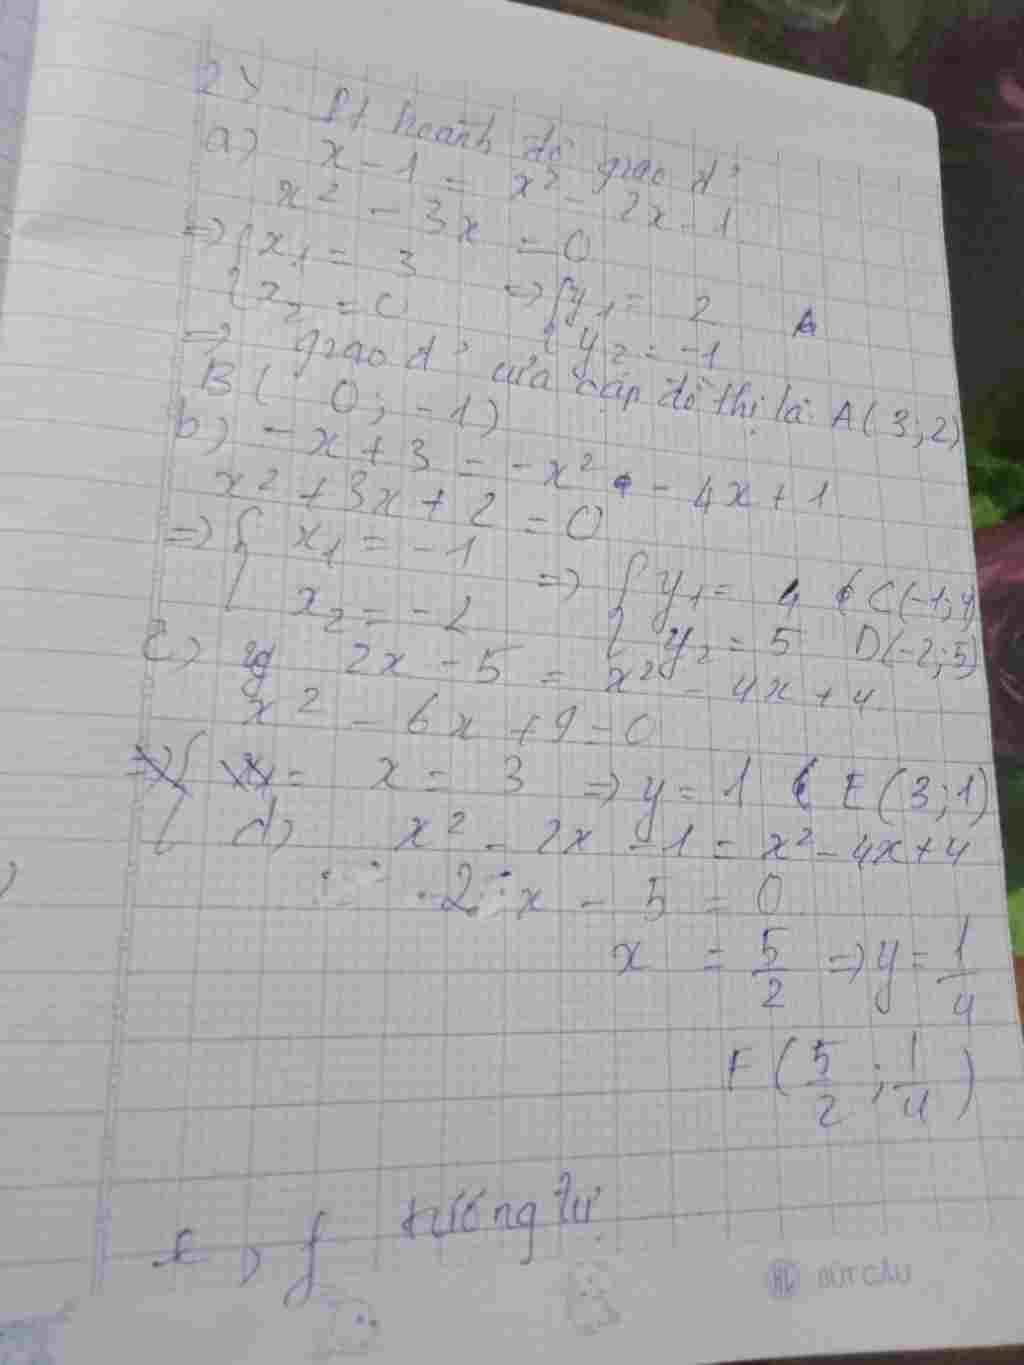 2)
Pt hoành độ giao đ'
a) x - 1 = x² - 2x - 1
x² - 3x = 0
=> { x₁ = 3 => { y₁ = 2 A
{ x₂ = 0 { y₂ = -1
=> giao đ' của cặp đồ thị là A(3;2)
B(0; -1)
b) -x + 3 = -x² - 4x + 1
x² + 3x + 2 = 0
=> { x₁ = -1 => { y₁ = 4 C(-1;4)
{ x₂ = -2 { y₂ = 5 D(-2;5)
c) 2x - 5 = x² - 4x + 4
x² - 6x + 9 = 0
x = 3 => y = 1 E(3;1)
d) x² - 2x - 1 = x² - 4x + 4
2x - 5 = 0
x = 5/2 => y = 1/4
F(5/2; 1/4)
e, f tương tự
BÚT CÂU